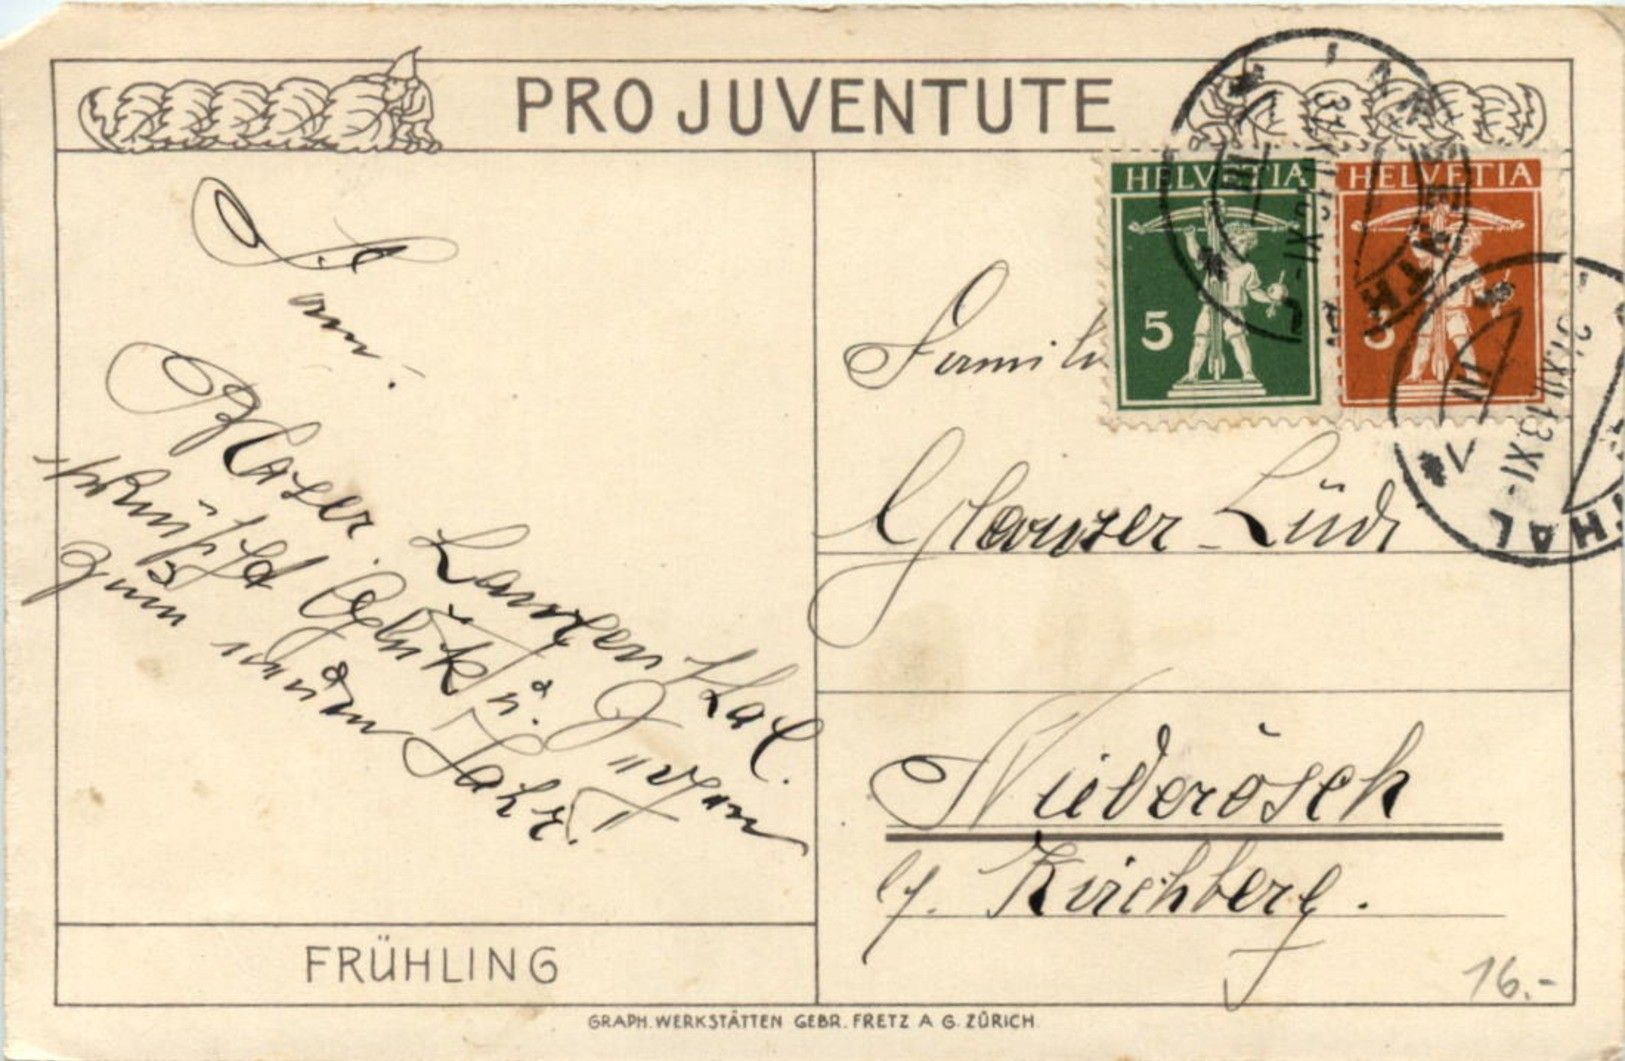 PRO JUVENTUTE
HELVETIA
5
HELVETIA
5
Fam.
Blaser. Langenthal.
wünscht Glük ü. Segen
zum neuen Jahr.
Famili
Glauser-Lüdi
Niederösch
b/. Kirchberg.
FRÜHLING
16.-
GRAPH. WERKSTÄTTEN GEBR. FRETZ A G. ZÜRICH